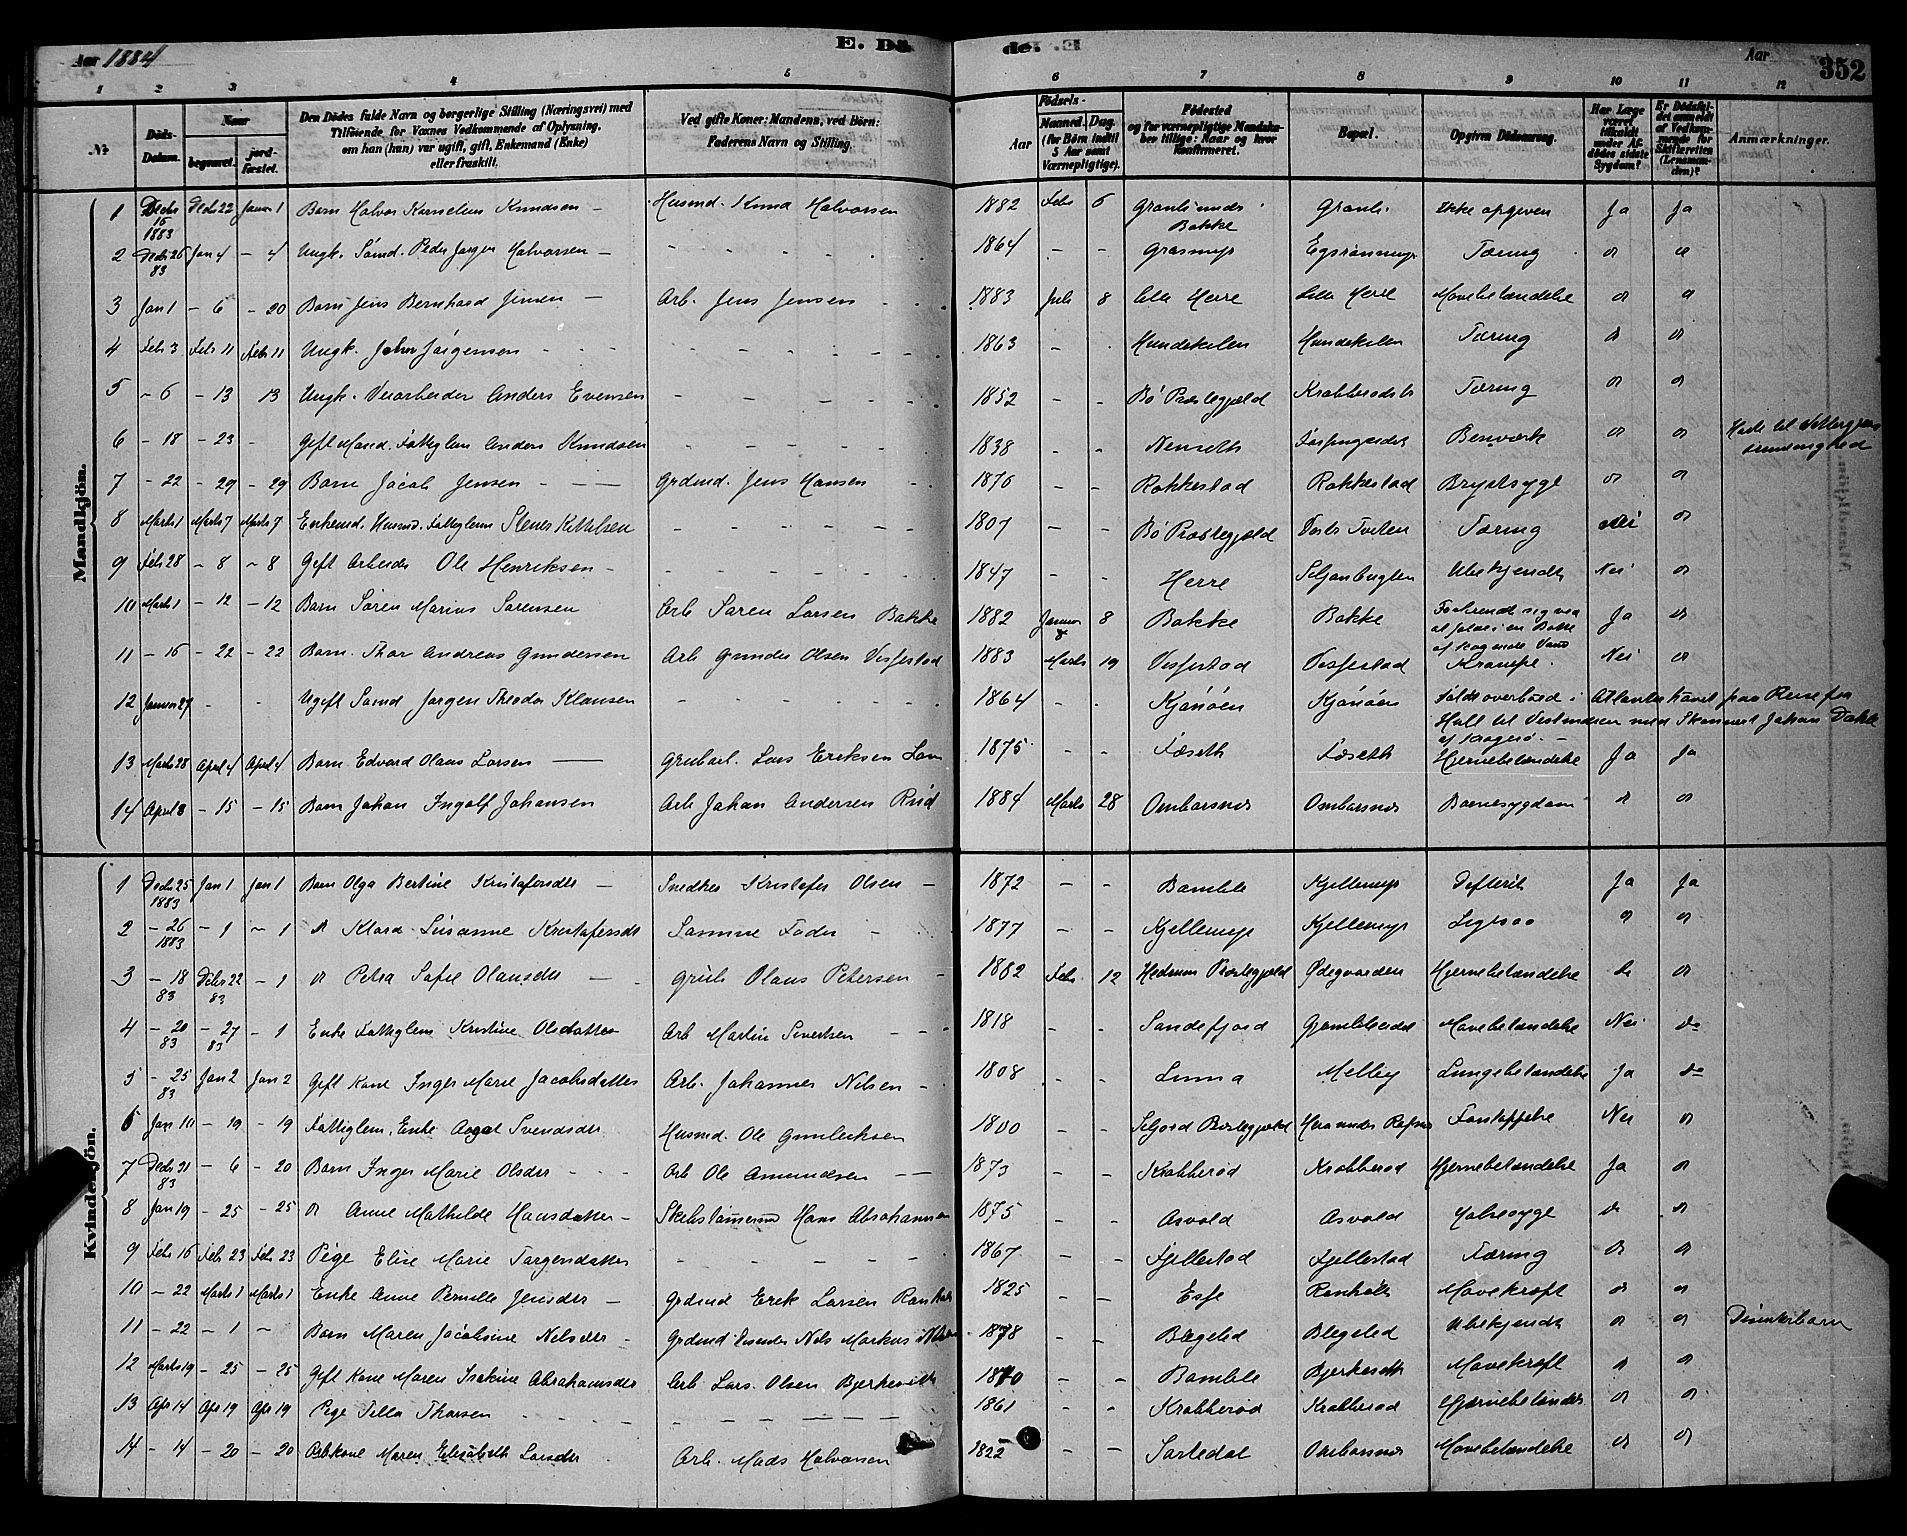 Aar 1884 E. Dö de. E Aar 352
1 2 3 4 5 6 7 8 9 10 11 12
№ Döds-Datum. Naar begravet. jord-fæstet. Den Dödes fulde Navn og borgerlige Stilling (Næringsvei) med Tilföiende for Voxnes Vedkommende af Oplysning, om han (hun) var ugift, gift, Enkemand (Enke) eller fraskilt. Ved gifte Koner: Mandens, ved Börn: Faderens Navn og Stilling. Födsels- Aar Maaned. Dag. (for Börn indtil 5 Aar samt Værnepligtige). Födested og for værnepligtige Mandskaber tillige: Naar og hvor Konfirmeret. Bopæl. Opgiven Dödsaarsag. Har Læge været tilkaldt under Afdödes sidste Sygdom? Er Dödsfaldet anmeldt af Vedkommende for Skifteretten (Lensmanden)? Anmærkninger.
Mandkjön.
1 Decbr 15 1883 Decbr 22 Januar 1 Barn Halvor Kornelius Knudsen Husmd. Knud Halvorsen 1882 Febr 6 Granli under Bakke Granli Ikke opgiven Ja Ja
2 Decbr 26 83 Jan 4 - 4 Ungk. Sømd. Peder Jørgen Halvorsen 1864 Grasmyr Tæring
3 Jan 1 - 6 - 20 Barn Jens Bernhard Jensen Arb. Jens Jensen 1883 Juli 8 Lille Herre Lille Herre Mavebetændelse
4 Febr 3 Febr 11 Febr 11 Ungk. John Jørgensen 1863 Hundekilen Hundekilen Tæring
5 - 6 - 13 13 Ungk. Veiarbeider Anders Evensen 1852 Bø Præstegjæld Tæring
6 - 18 - 23 - Gift Mand. Fattiglem Anders Knudsen 1838 Nenseth Benværk
7 - 22 - 29 - 29 Barn Jacob Jensen Grdmd. Jens Hansen 1876 Rakkestad Rakkestad Brystsyge
8 Marts 1 Marts 7 Marts 7 Enkemd. Husmd. Fattiglem Kittilsen 1807 Bø Præstegjæld Tveten Tæring Nei
9 Febr 28 - 8 - 8 Gift Arbeider Ole Henriksen 1847 Herre Ubekjendt Nei
10 Marts 1 - 12 - 12 Barn Søren Marius Sørensen Arb Søren Larsen Bakke 1882 Januar 8 Bakke Bakke Forbrendt sig ved at falde i en Balle af kogende Vand Ja
11 - 16 - 22 - 22 Barn. Thor Andreas Gundersen Arb Gunder Olsen Visfestad 1883 Marts 19 Visfestad Visfestad Krampe. Nei
12 Januar 27 - - Ugift Sømd Jørgen Theodor Klausen 1864 Kjønøen Kjønøen Faldt overbord i Atlanterhavet paa Reise fra Hull til Vestindien med Johan af Kragerø.
13 Marts 28 April 4 April 4 Barn Edvard Olaus Larsen Grubarb. Lars Eriksen 1875 Fæseth Fæseth Hjernebetændelse Ja Ja
14 April 8 - 15 - 15 Barn Johan Ingolf Johansen Arb Johan Andersen Rød 1884 Marts 28 Ombarsnes Ombarsnes Barnesygdom
Kvindekjön.
1 Decbr 25 1883 Jan 1 Jan 1 Barn Olga Bertine Kristofersdtr Snedker Kristofer Olsen 1872 Bamble Kjellemyr Difterit Ja Ja
2 - 26 1883 - 1 - 1 Klara Susanne Kristofersdtr Samme Fader 1877 Kjellemyr Kjellemyr Ligesaa
3 - 18 83 Decbr 22 83 - 1 Petra Sofie Olausdtr Grub Olaus Petersen 1882 Febr 12 Hedrum Præstegjæld Ødegaarden Hjernebetændelse
4 - 20 83 - 27 83 - 1 Enke Fattiglem Kristine Olsdatter Arb Martin Sivertsen 1818 Sandefjord Mavebetændelse Nei do
5 - 25 83 Jan 2 Jan 2 Gift Kone Inger Marie Jacobsdatter Arb. Johannes Nilsen 1808 Melby Lungebetændelse Ja do
6 Jan 10 - 19 - 19 Fattiglem. Enke Aagot Svendsdtr Husmd. Ole Gunleiksen 1800 Seljord Præstegjæld Forstoppelse Nei
7 Decbr 21 83 - 6 - 20 Barn Inger Marie Olsdtr Arb Ole Amundsen 1873 Krabberød Krabberød Hjernebetændelse Ja
8 Jan 19 - 25 - 25 Anne Mathilde Hansdatter Skibstømmermd Hans Abrahamsen 1875 Asvald Asvald Halssyge
9 Febr 16 Febr 23 Febr 23 Pige Elise Marie Torgersdatter 1867 Fjellestad Fjellestad Tæring
10 - 22 Marts 1 Marts 1 Enke Anne Pernille Jensdtr Grdmd Erik Larsen 1825 Ronholt Mavekræft
11 - 22 - 1 - Barn Maren Jacobine Nilsdtr Grdmd Dissenter Nils Markus 1878 Blegelid Blegelid Ubekjendt Dissenterbarn
12 Marts 19 - 25 - 25 Gift Kone Maren Isakine Abrahamsdtr Arb Lars Olsen Bjerkeseth Bamble Bjerkeseth Mavekræft
13 Apr 14 Apr 19 Apr 19 Pige Tilla Thorsen 1861 Krabberød Krabberød Hjernebetændelse
14 - 14 - 20 - 20 Arbkone Maren Elisabeth Larsdtr Arb. Mads Halvorsen 1822 Sortedal Ombarsnes Mavebetændelse